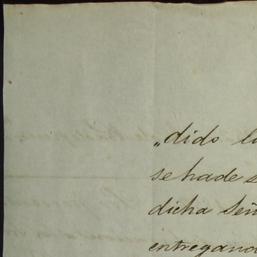 „dido l
se ha de s
dicha señ
entregand